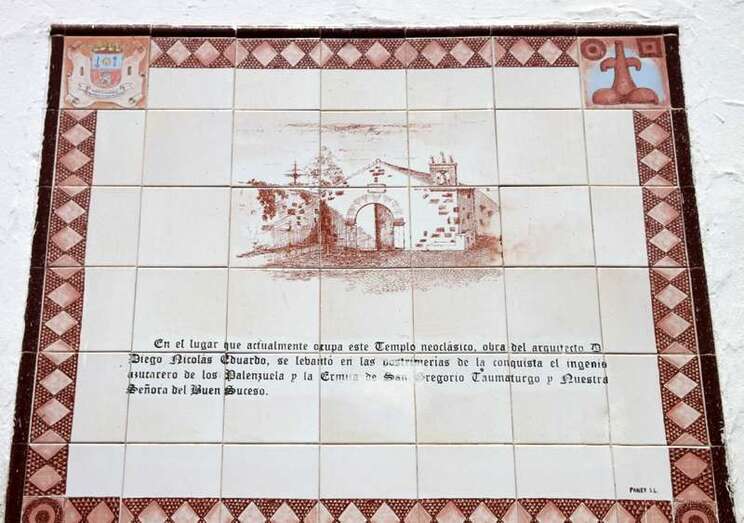 En el lugar que actualmente ocupa este Templo neoclásico, obra del arquitecto D
Diego Nicolás Eduardo, se levantó en las postrimerias de la conquista el ingenio
azucarero de los Palenzuela y la Ermita de San Gregorio Taumaturgo y Nuestra
Señora del Buen Suceso.
PANEY S.L.